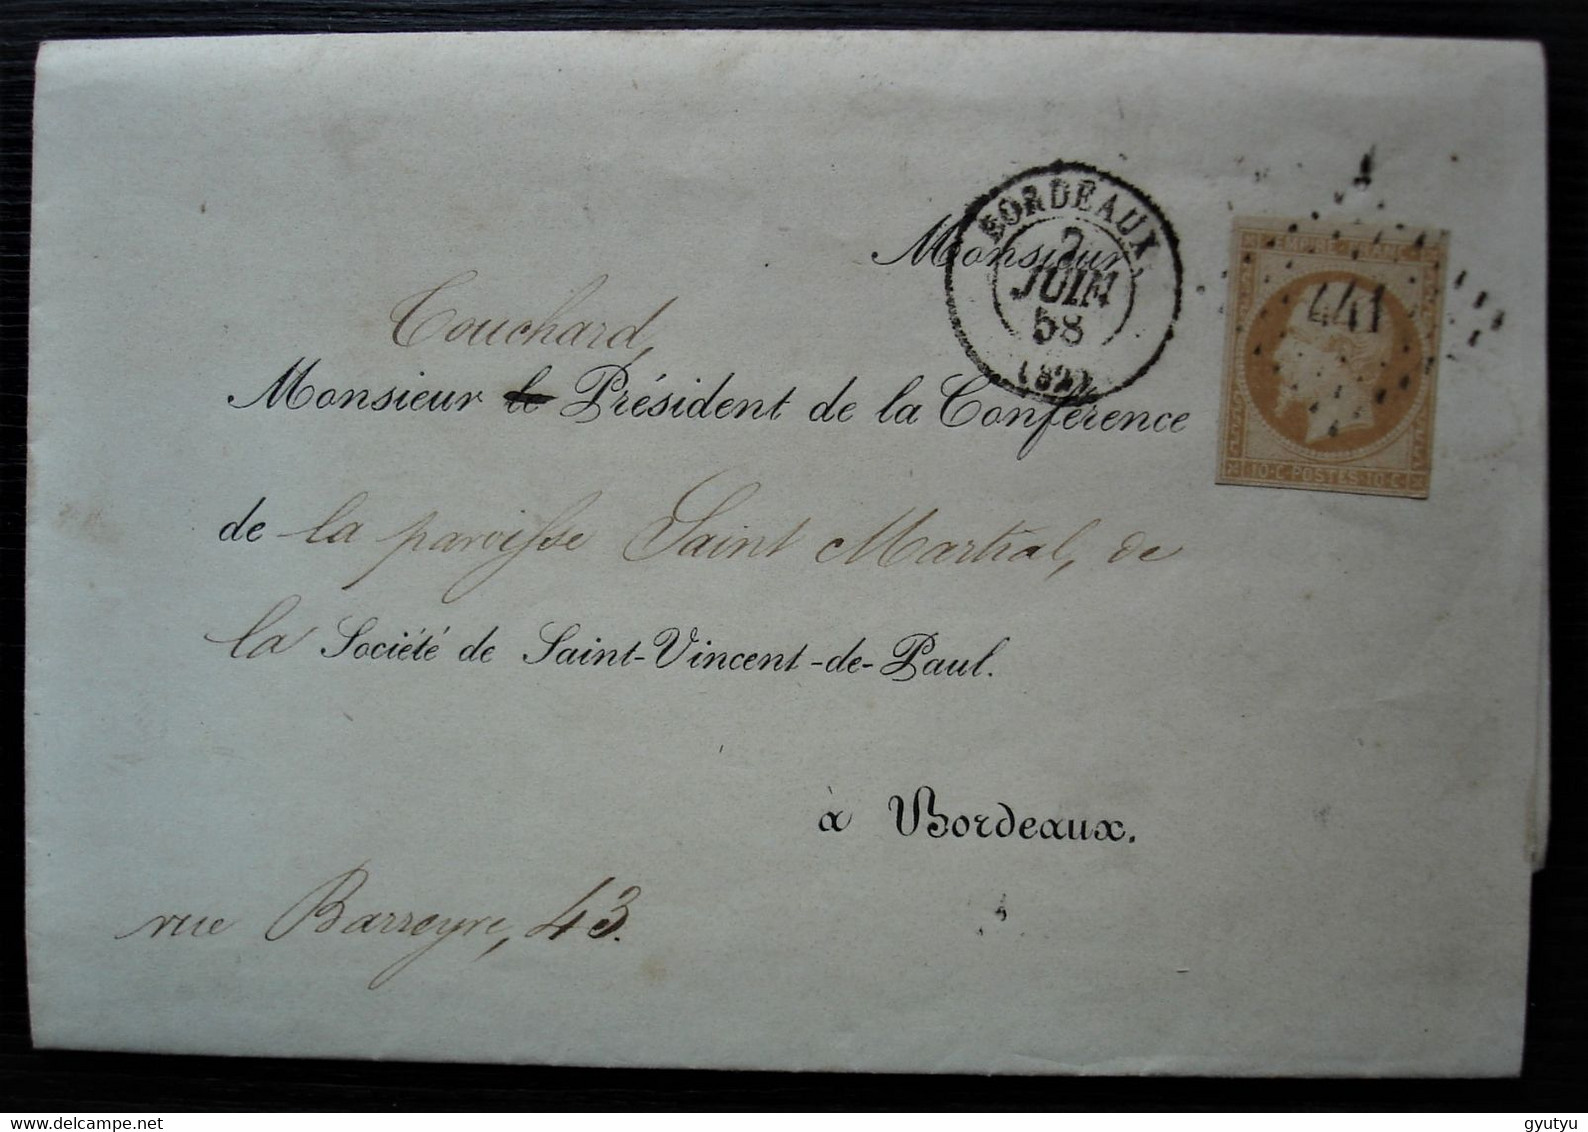 BORDEAUX
2
JUIN
58
(32)
EMPIRE · FRANC ·
441
10 · C · POSTES · 10 · C
Monsieur
Touchard,
Monsieur le Président de la Conférence
de la paroisse Saint Martial, de
la Société de Saint-Vincent-de-Paul.
à Bordeaux.
rue Barreyre, 43.
www.delcampe.net
gyutyu